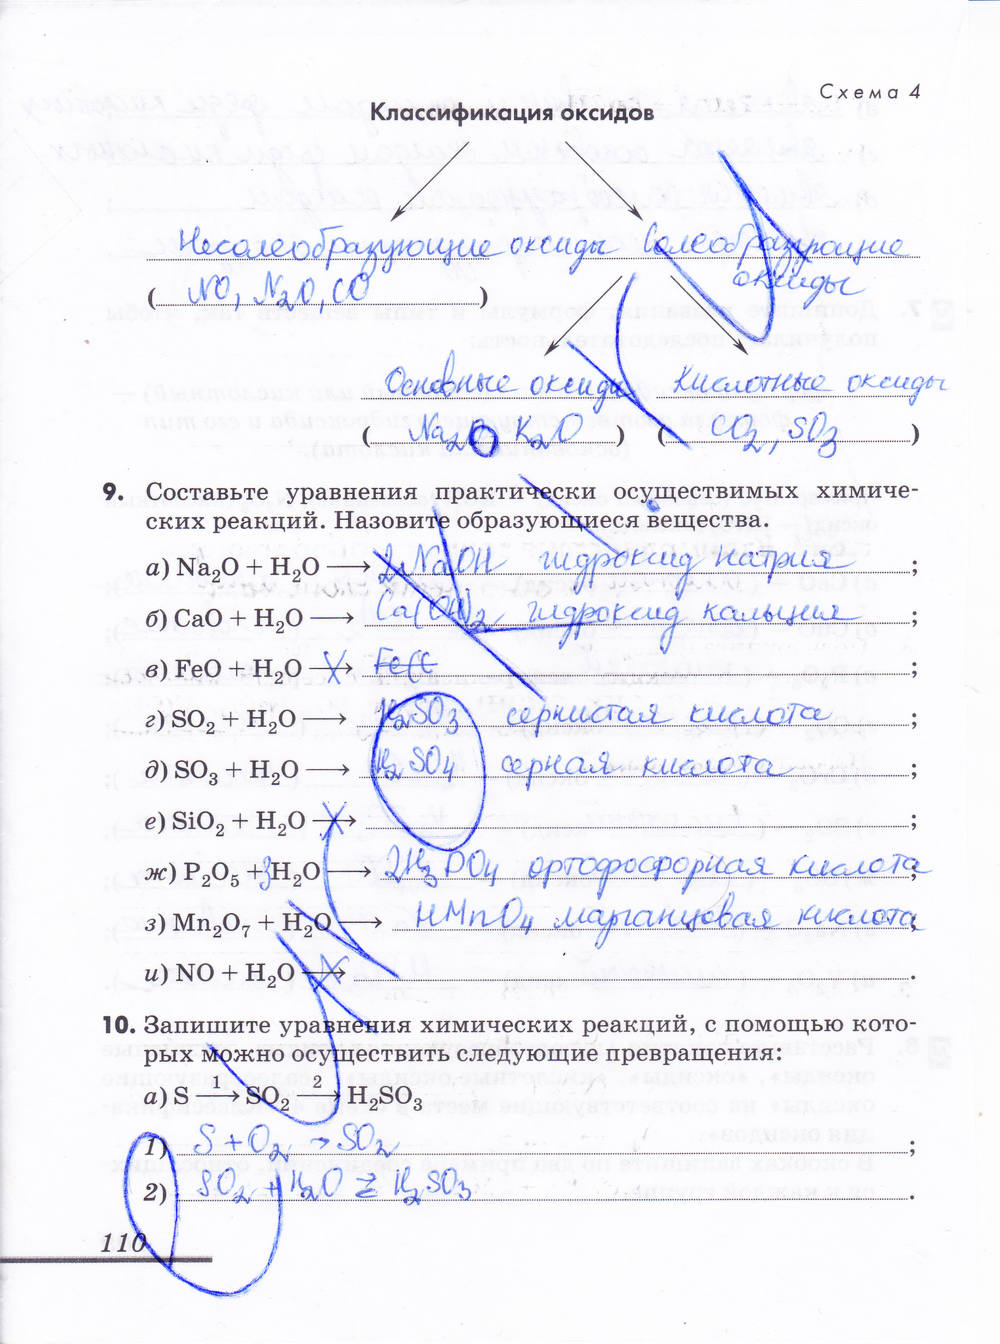 Схема 4
Классификация оксидов
Несолеобразующие оксиды Солеобразующие
оксиды
( NO, N₂O, CO )
Основные оксиды Кислотные оксиды
( Na₂O K₂O ) ( CO₂, SO₃ )
9. Составьте уравнения практически осуществимых химиче-
ских реакций. Назовите образующиеся вещества.
а) Na₂O + H₂O ⟶ 2NaOH гидроксид натрия ;
б) CaO + H₂O ⟶ Ca(OH)₂ гидроксид кальция ;
в) FeO + H₂O ⟶ ;
г) SO₂ + H₂O ⟶ H₂SO₃ сернистая кислота ;
д) SO₃ + H₂O ⟶ H₂SO₄ серная кислота ;
е) SiO₂ + H₂O ⟶ ;
ж) P₂O₅ + 3H₂O ⟶ 2H₃PO₄ ортофосфорная кислота ;
з) Mn₂O₇ + H₂O ⟶ HMnO₄ марганцовая кислота ;
и) NO + H₂O ⟶ .
10. Запишите уравнения химических реакций, с помощью кото-
рых можно осуществить следующие превращения:
а) S —1→ SO₂ —2→ H₂SO₃
1) S + O₂ → SO₂ ;
2) SO₂ + H₂O ⇄ H₂SO₃ .
110